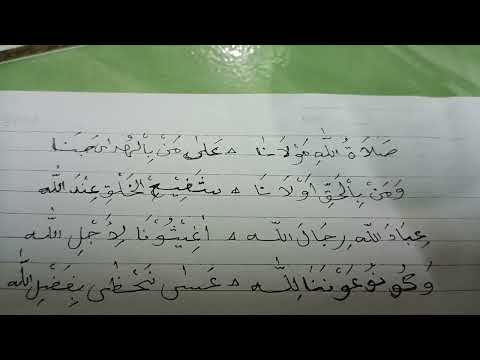 صَلَاةُ اللّٰهِ مَوْلَانَا ۞ عَلَى مَنْ بِالْهُدَى حَبَنَا
وَمَنْ بِالْحَقِّ أَوْلَانَا ۞ شَفِيْعِ الْخَلْقِ عِنْدَ اللّٰهِ
عِبَادَ اللّٰهِ رِجَالَ اللّٰهِ ۞ أَغِيْثُوْنَا لِأَجْلِ اللّٰهِ
وَكُوْنُوْا عَوْنَنَا لِلّٰهِ ۞ عَسَى نَحْظَى بِفَضْلِ اللّٰهِ